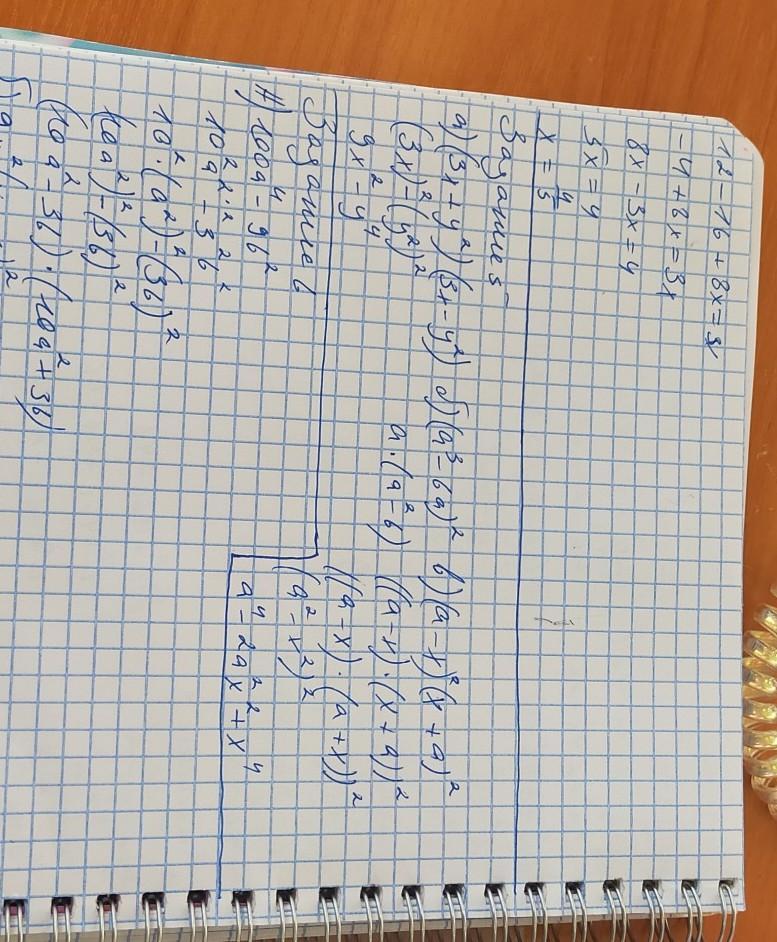 12-16+8x=3x
-4+8x=3x
8x-3x=4
5x=4
x=4/5
Задание 5
а)(3x+y²)(3x-y²)
(3x)²-(y²)²
9x²-y⁴
б)(a³-6a)²
a·(a²-6)
в)(a-x)²(x+a)²
((a-x)·(x+a))²
((a-x)·(a+x))²
(a²-x²)²
a⁴-2a²x²+x⁴
Задание 6
А)100a⁴-9b²
10²a²·²-3²b²
10²·(a²)²-(3b)²
(10a²)²-(3b)²
(10a²-3b)·(10a²+3b)